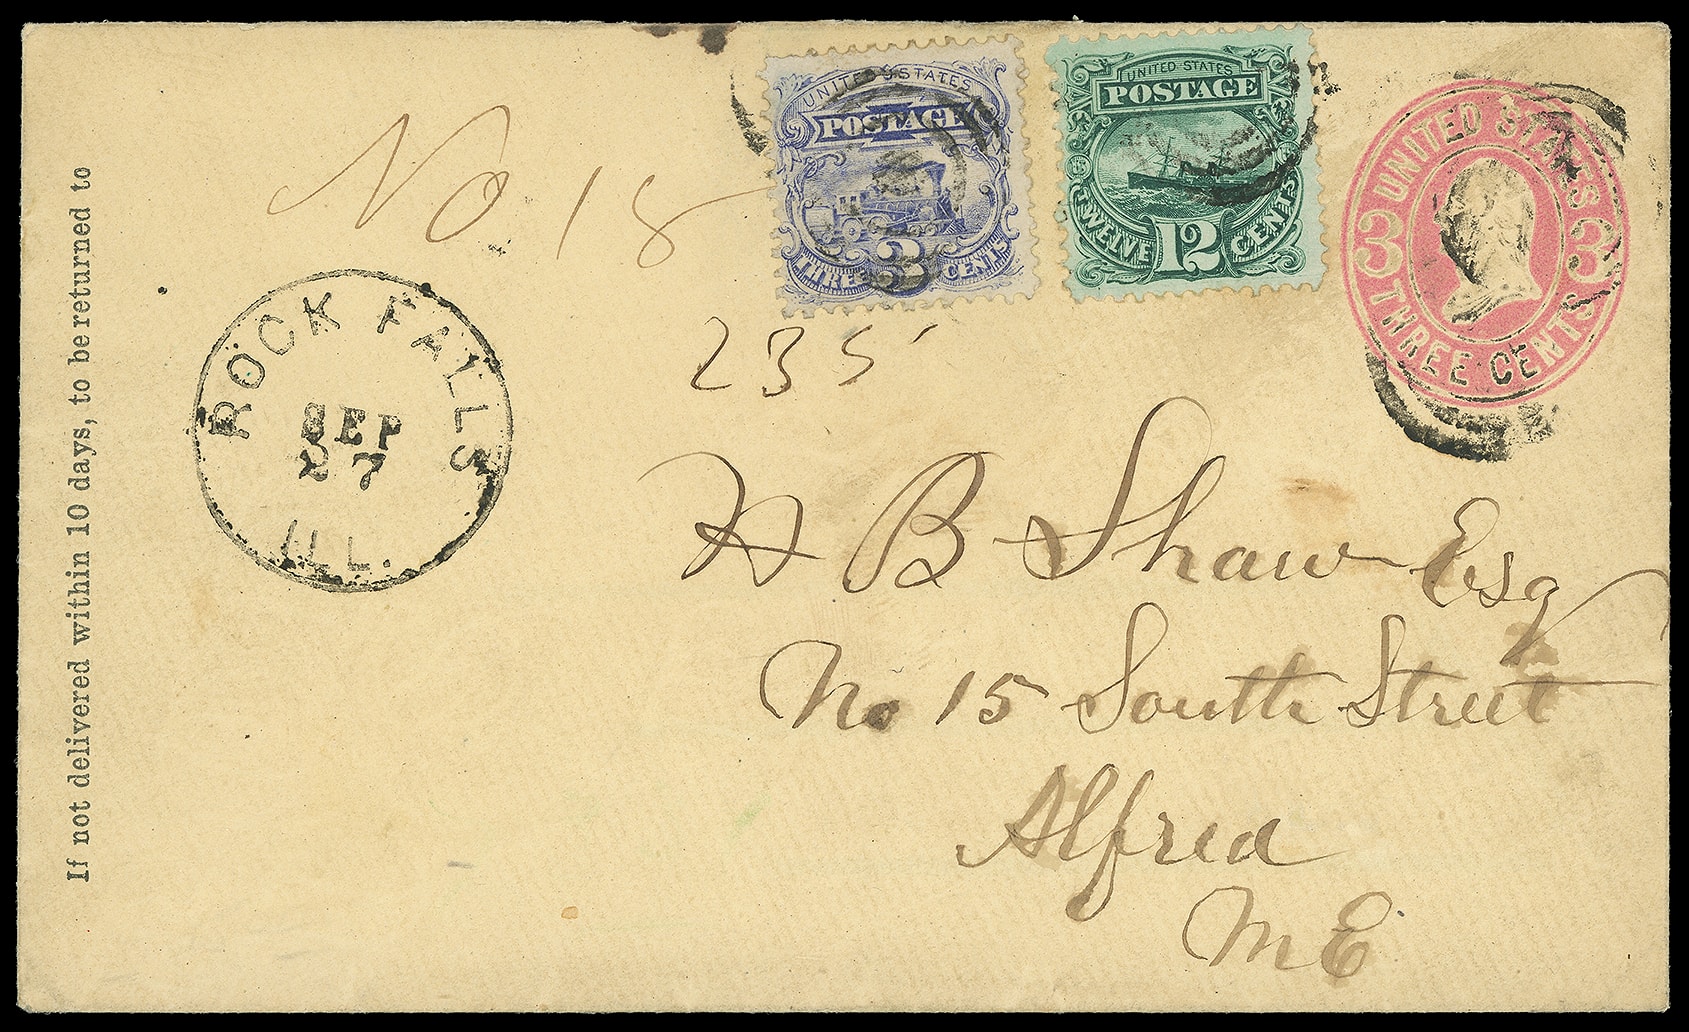 If not delivered within 10 days, to be returned to
No 18
UNITED STATES
POSTAGE
3
THREE CENTS
UNITED STATES
POSTAGE
TWELVE 12 CENTS
UNITED STATES
3 3
THREE CENTS
ROCK FALLS
SEP
27
ILL.
235
H B Shaw Esq
No 15 South Street
Alfred
ME